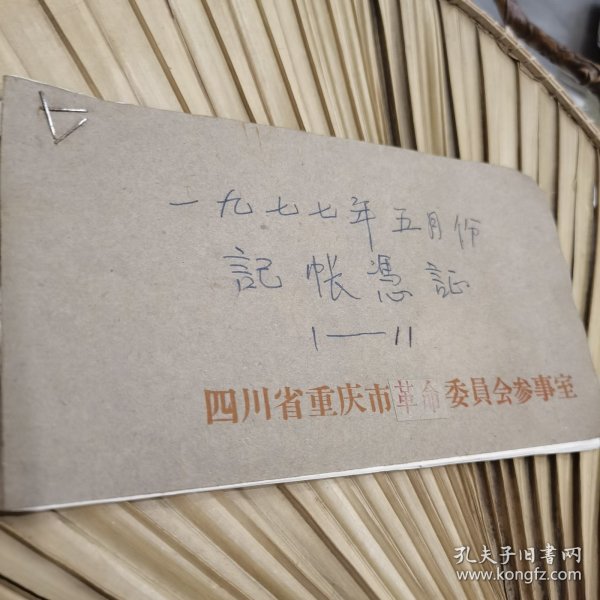 一九七七年五月份
記帐憑証
1—11
四川省重庆市革命委員会参事室
孔夫子旧書网
www.kongfz.com